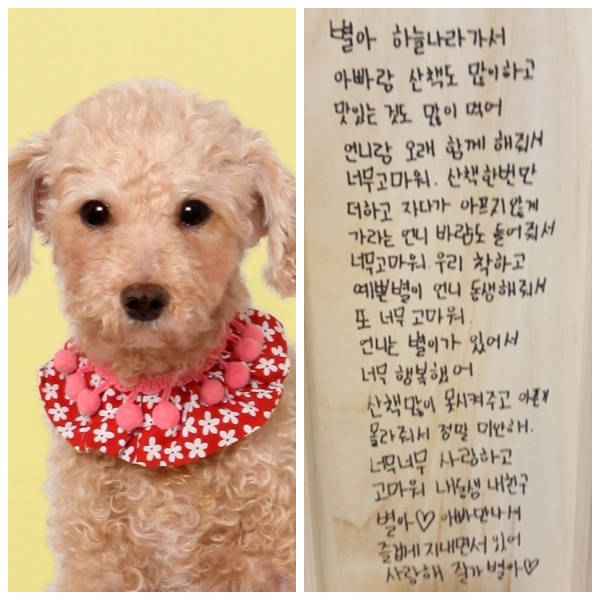 별아 하늘나라가서
아빠랑 산책도 많이하고
맛있는 것도 많이 먹어
언니랑 오래 함께 해줘서
너무고마워. 산책한번만
더하고 자다가 아프지않게
가라는 언니 바람도 들어줘서
너무고마워. 우리 착하고
예쁜별이 언니 동생해줘서
또 너무 고마워
언니는 별이가 있어서
너무 행복했어
산책많이 못시켜주고 아픈거
몰라줘서 정말 미안해.
너무너무 사랑하고
고마워 내동생 내친구
별아♡ 아빠만나서
즐겁게 지내면서 있어
사랑해 잘가 별아♡